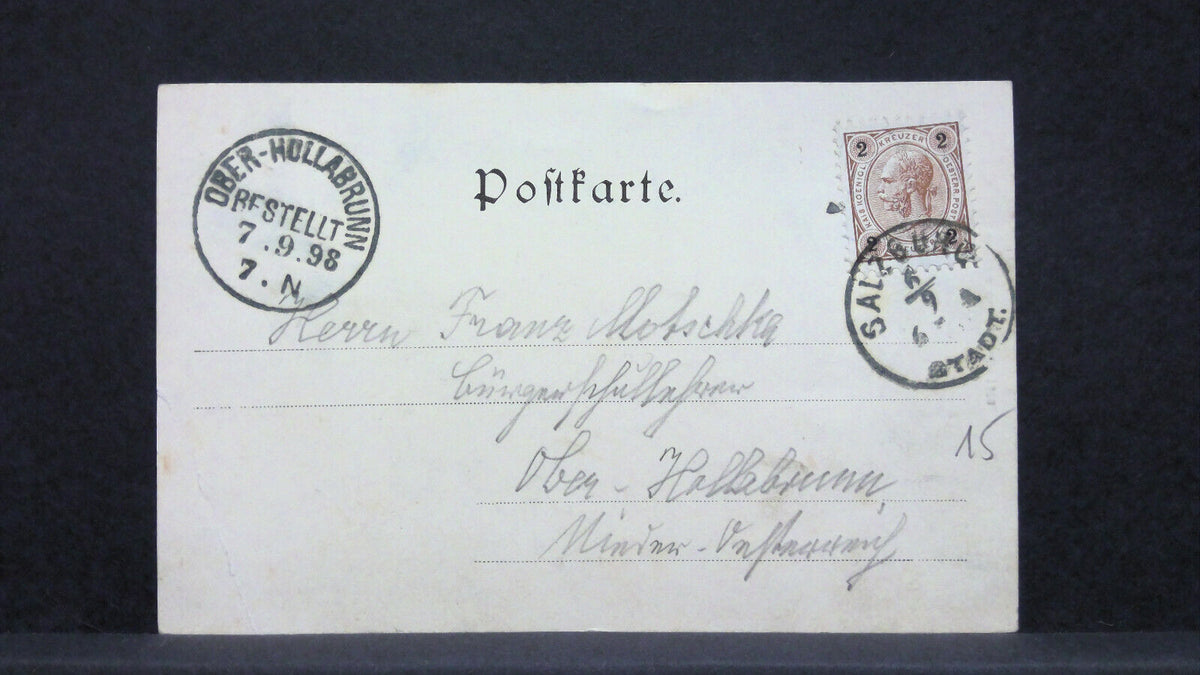 Postkarte.
OBER-HOLLABRUNN
BESTELLT
7.9.98
7.N
2 KREUZER 2
KAIS. KOENIGL. OESTERR. POST
2 2
SALZBURG
6/9
6
STADT.
Herrn Franz Motschka
Bürgerschullehrer
Ober-Hollabrunn
Nieder-Oesterreich
15